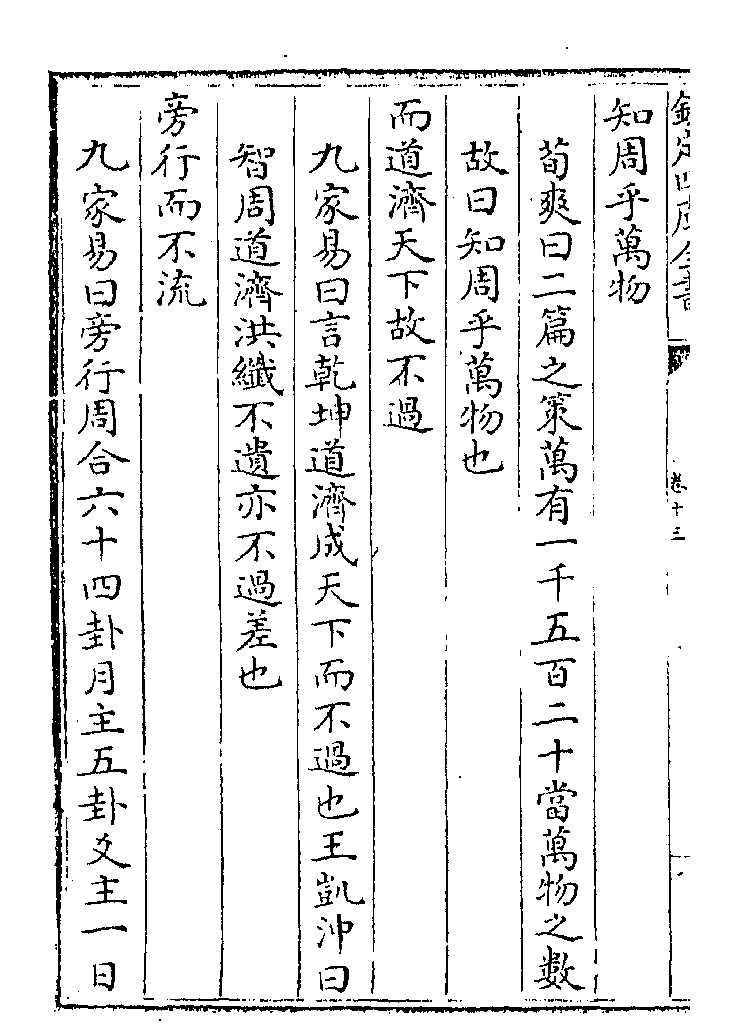 欽定四庫全書
卷十三
知周乎萬物
荀爽曰二篇之䇿萬有一千五百二十當萬物之數
故曰知周乎萬物也
而道濟天下故不過
九家易曰言乾坤道濟成天下而不過也王凱沖曰
智周道濟洪纖不遺亦不過差也
旁行而不流
九家易曰旁行周合六十四卦月主五卦爻主一日